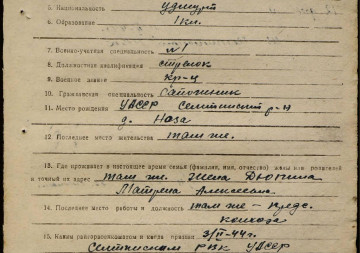 5. Национальность удмурт
6. Образование 1 кл.
7. Военно-учетная специальность №1
8. Должностная квалификация стрелок
9. Военное звание кр-ц
10. Гражданская специальность сапожник
11. Место рождения УАССР Селтинский р-н
д. Наза
12. Последнее место жительства там же.
13. Где проживает в настоящее время семья (фамилия, имя, отчество) жены или родителей
и точный их адрес там же. Жена Дюпина
Матрена Алексеевна
14. Последнее место работы и должность там же – пред.
колхоза
15. Каким райгорвоенкоматом и когда призван 3/II-44г.
Селтинским РВК УАССР